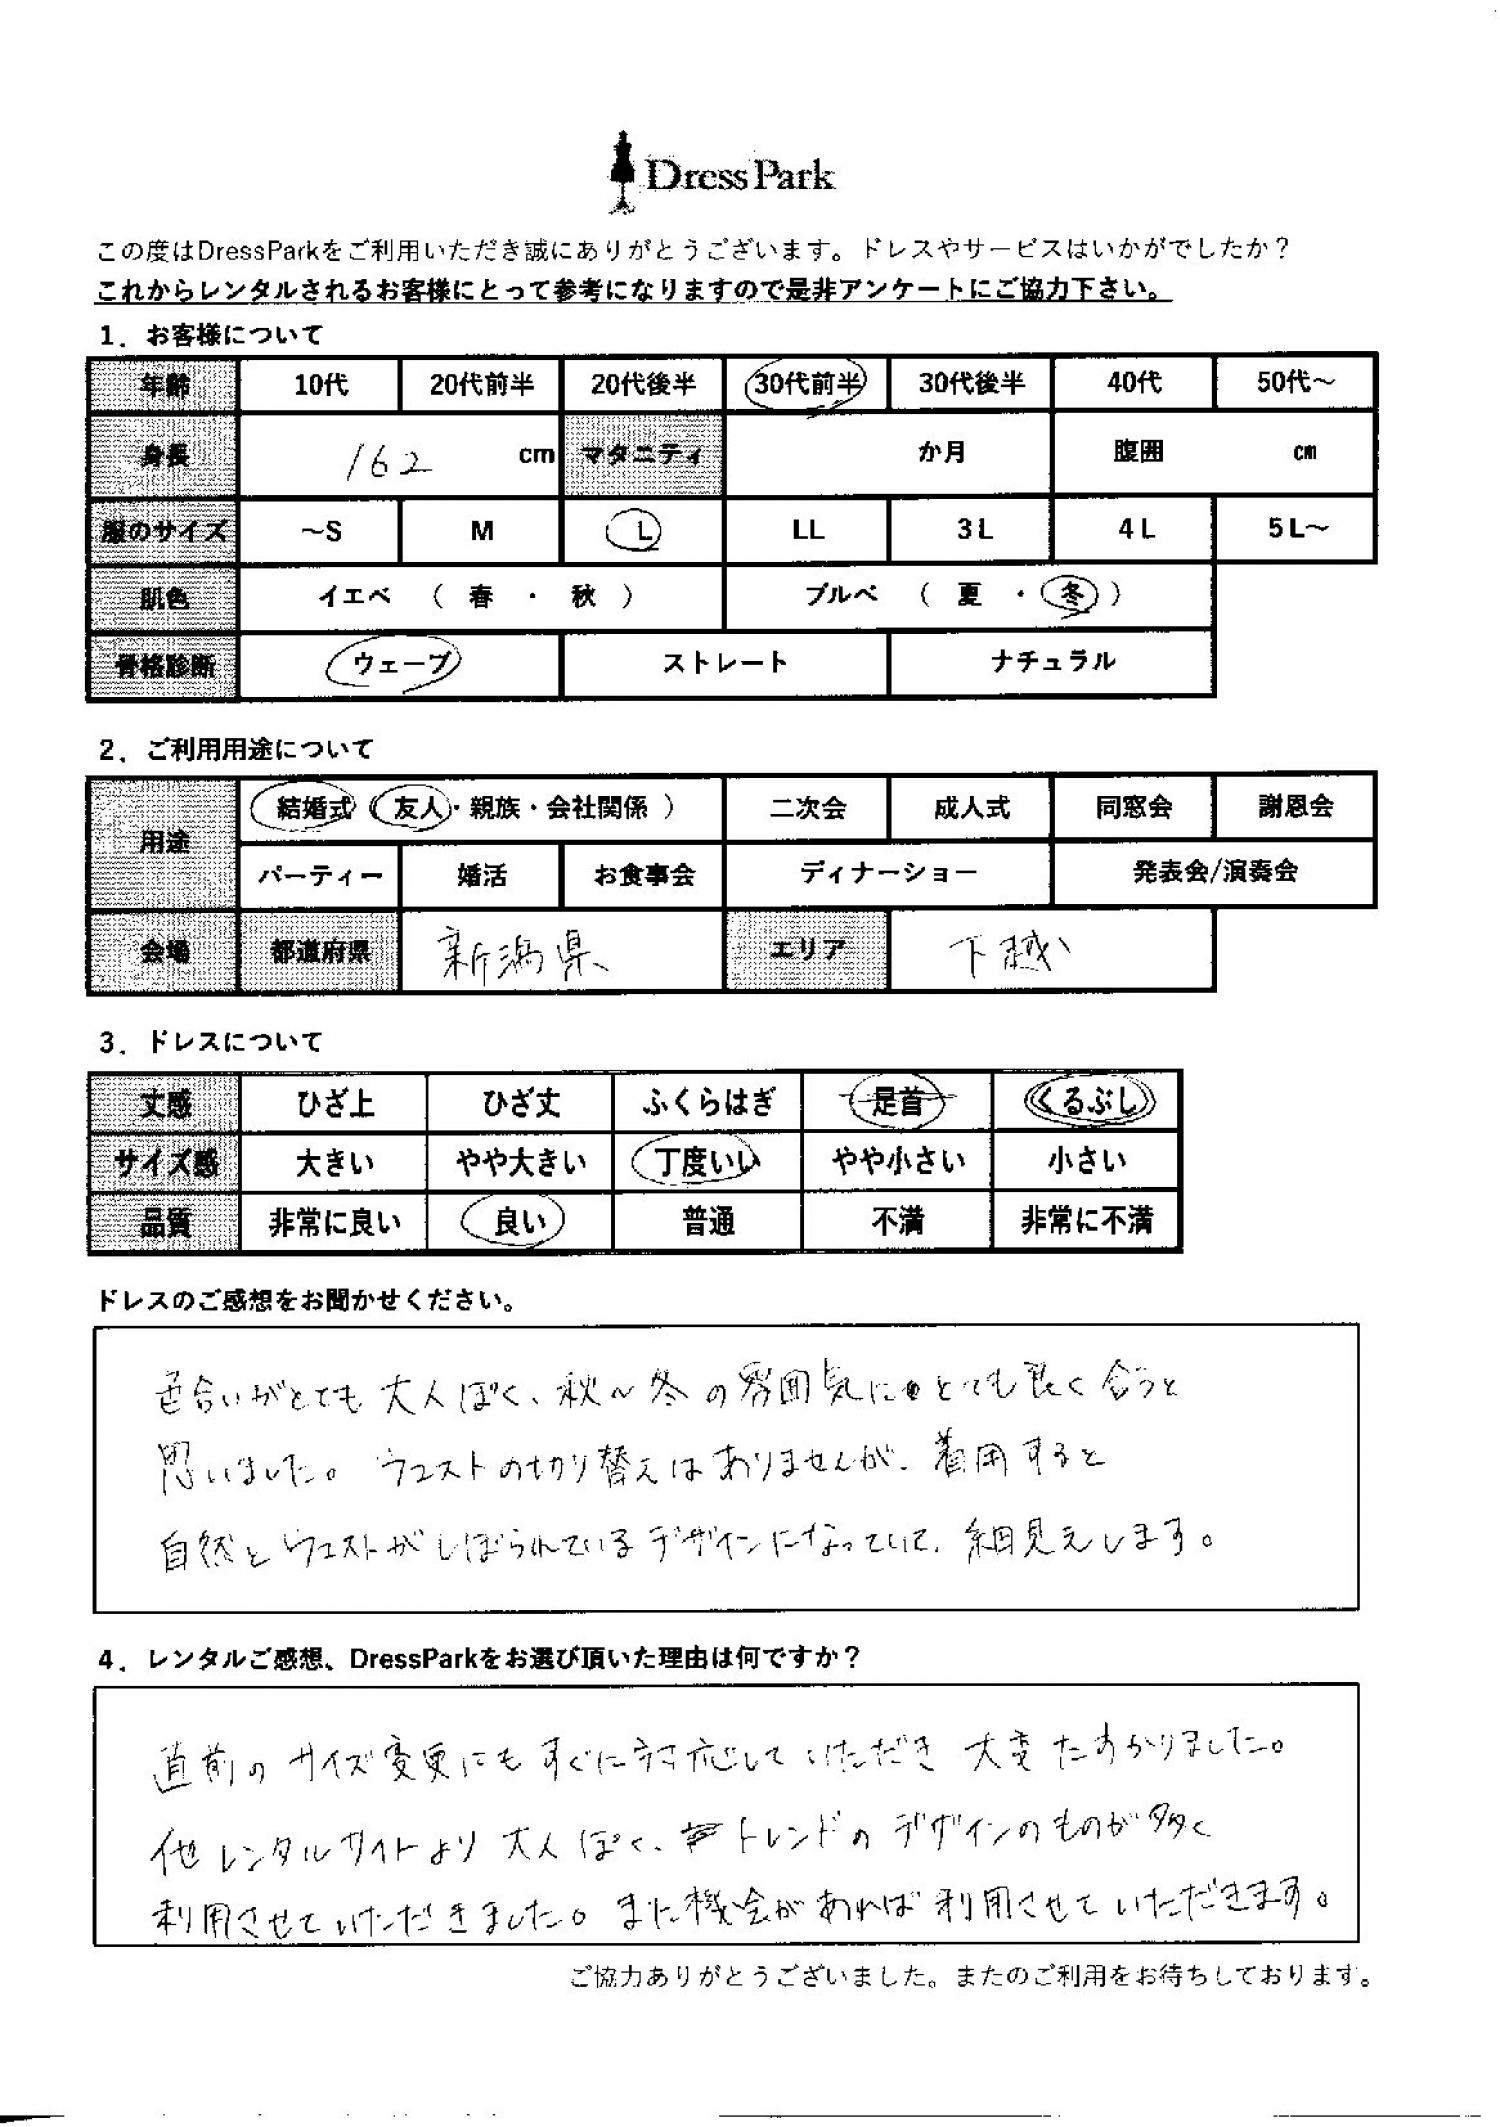 DressPark
この度はDressParkをご利用いただき誠にありがとうございます。ドレスやサービスはいかがでしたか？
これからレンタルされるお客様にとって参考になりますので是非アンケートにご協力下さい。
1．お客様について
年齢 10代 20代前半 20代後半 30代前半 30代後半 40代 50代～
身長 162 cm マタニティ か月 腹囲 cm
服のサイズ ～S M L LL 3L 4L 5L～
肌色 イエベ （ 春 ・ 秋 ） ブルベ （ 夏 ・ 冬 ）
骨格診断 ウェーブ ストレート ナチュラル
2．ご利用用途について
用途 結婚式（友人・親族・会社関係） 二次会 成人式 同窓会 謝恩会
パーティー 婚活 お食事会 ディナーショー 発表会/演奏会
会場 都道府県 新潟県 エリア 下越
3．ドレスについて
丈感 ひざ上 ひざ丈 ふくらはぎ 足首 くるぶし
サイズ感 大きい やや大きい 丁度いい やや小さい 小さい
品質 非常に良い 良い 普通 不満 非常に不満
ドレスのご感想をお聞かせください。
色合いがとても大人ぽく、秋～冬の雰囲気にとても良く合うと
思いました。ウエストの切り替えはありませんが、着用すると
自然とウエストがしぼられているデザインになっていて、細見えします。
4．レンタルご感想、DressParkをお選び頂いた理由は何ですか？
直前のサイズ変更にもすぐに対応していただき大変たすかりました。
他レンタルサイトより大人ぽく、トレンドのデザインのものが多く
利用させていただきました。また機会があれば利用させていただきます。
ご協力ありがとうございました。またのご利用をお待ちしております。